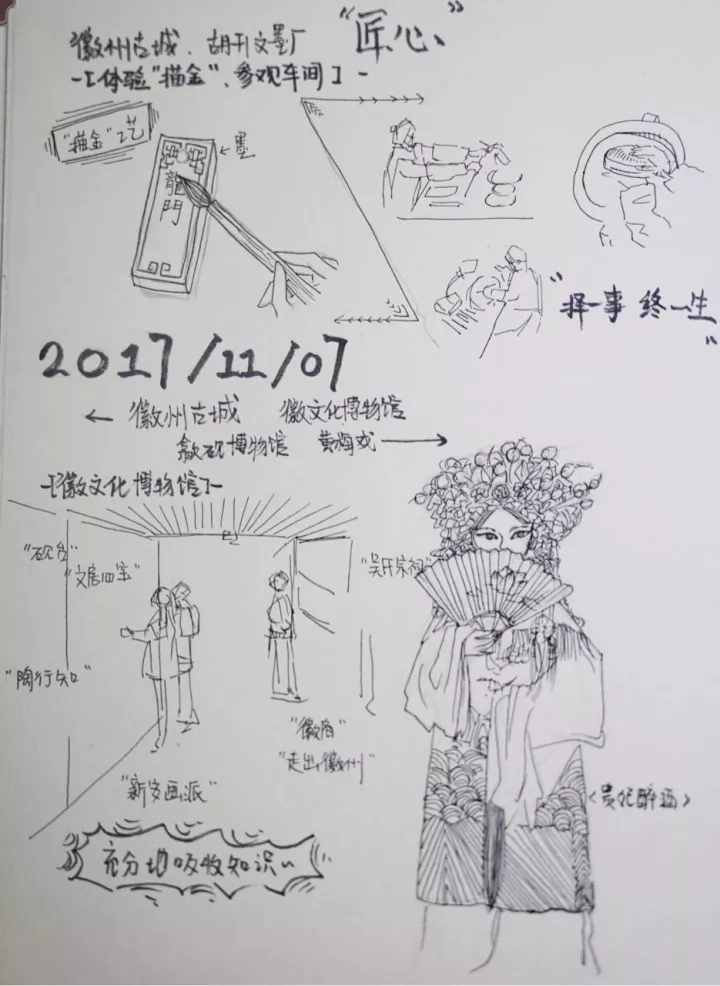 徽州古城、胡开文墨厂 "匠心"
-[体验"描金"、参观车间]-
"描金"工艺
←墨
龍門
"择一事 终一生"
2017/11/07
← 徽州古城 徽文化博物馆
歙砚博物馆 黄梅戏 →
-[徽文化博物馆]-
"砚台"
"文房四宝"
"吴氏宗祠"
"陶行知"
"徽商"
"走出徽州"
"新安画派"
<贵妃醉酒>
充分地吸收知识~